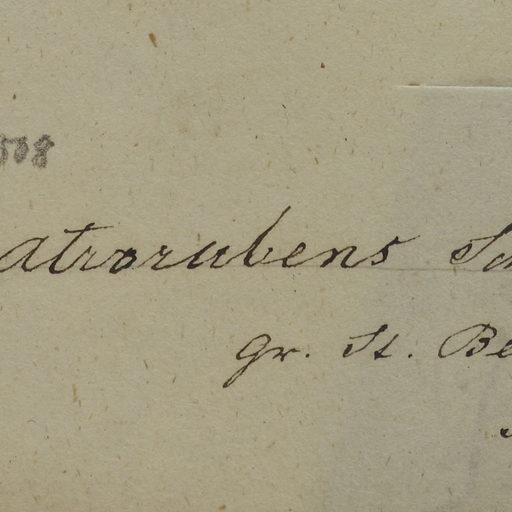 508
atrorubens Sch
gr. St. Be